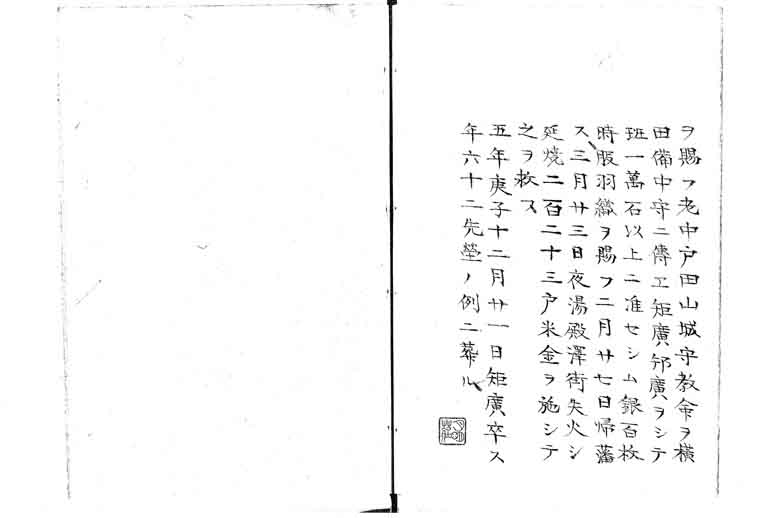 ヲ賜フ老中戸田山城守教命ヲ横
田備中守ニ傳エ矩廣邦廣ヲシテ
班一萬石以上ニ准セシム銀百枚
時服羽織ヲ賜フ二月廿七日帰藩
ス三月廿三日夜湯殿澤街失火シ
延燒二百二十三戸米金ヲ施シテ
之ヲ救フ
五年庚子十二月廿一日矩廣卒ス
年六十二先塋ノ例ニ葬ル